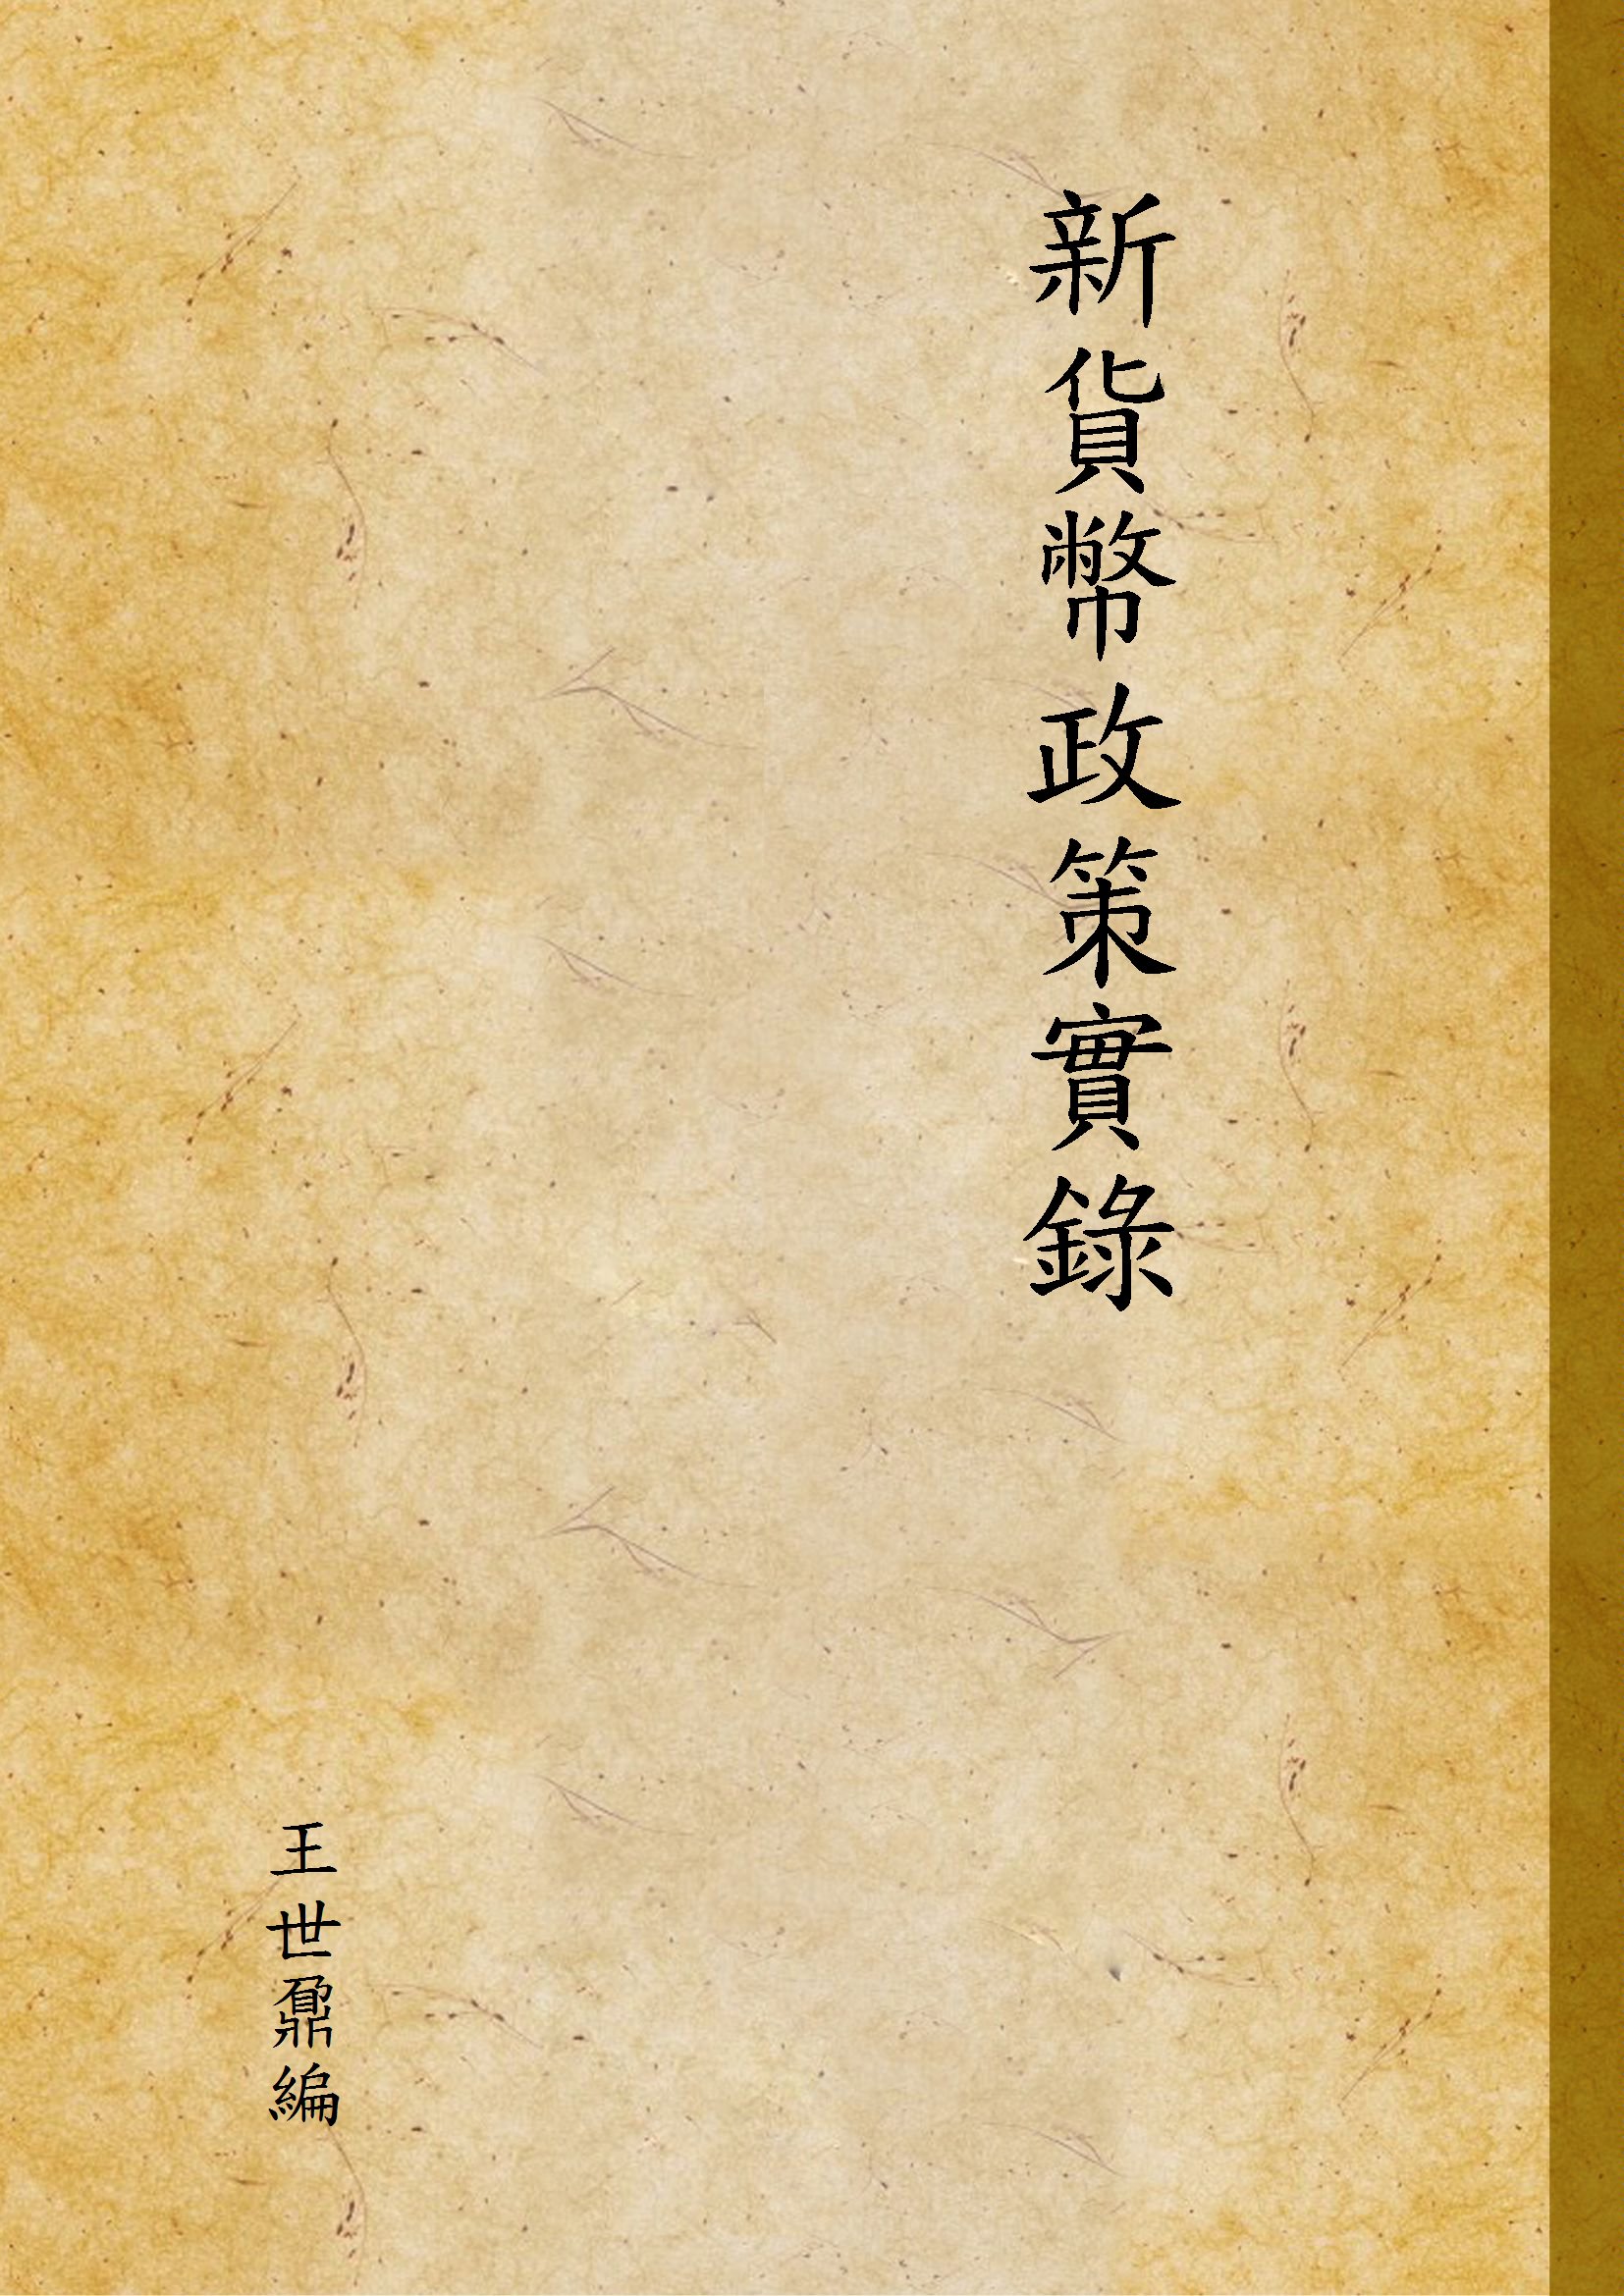 新貨幣政策實錄
王世鼐編